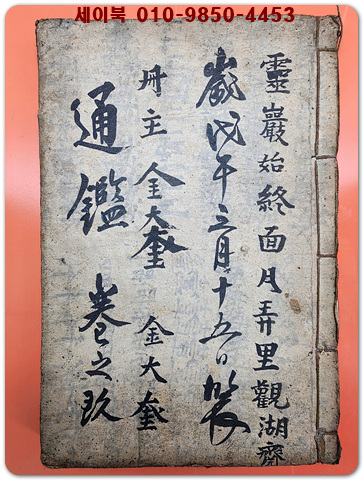 세이북 010-9850-4453
靈巖始終面月弄里觀湖齋
歲戊午三月十五日裝
冊主 金大奎 金大奎
通鑑 卷之玖